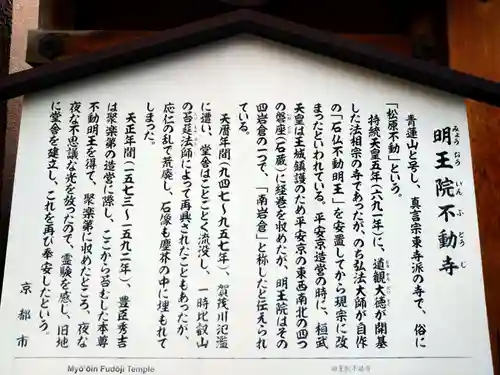 明王院不動寺
みょう おう いん ふ どう じ
青蓮山と号し、真言宗東寺派の寺で、俗に
「松原不動」という。
持統天皇五年(六九一年)に、道観大徳が開基
した法相宗の寺であったが、のち弘法大師が自作
の「石仏不動明王」を安置してから現宗に改
まったといわれている。平安京造営の時に、桓武
天皇は王城鎮護のため平安京の東西南北の四つ
の磐座(石蔵)に経巻を収めたが、明王院はその
四岩倉の一つで、「南岩倉」と称したと伝えられ
ている。
天暦年間(九四七〜九五七年)、賀茂川氾濫
に遭い、堂舎はことごとく流没し、一時比叡山
の苔莚法師によって再興されたこともあったが、
応仁の乱で荒廃し、石像も塵芥の中に埋もれて
しまった。
天正年間(一五七三〜一五九二年)、豊臣秀吉
は聚楽第の造営に際し、ここから苔むした本尊
不動明王を得て、聚楽第に収めたところ、夜な
夜な不思議な光を放ったので、霊験を感じ、旧地
に堂舎を建立し、これを再び奉安したという。
京都市
Myō'ōin Fudōji Temple
明王院不動寺